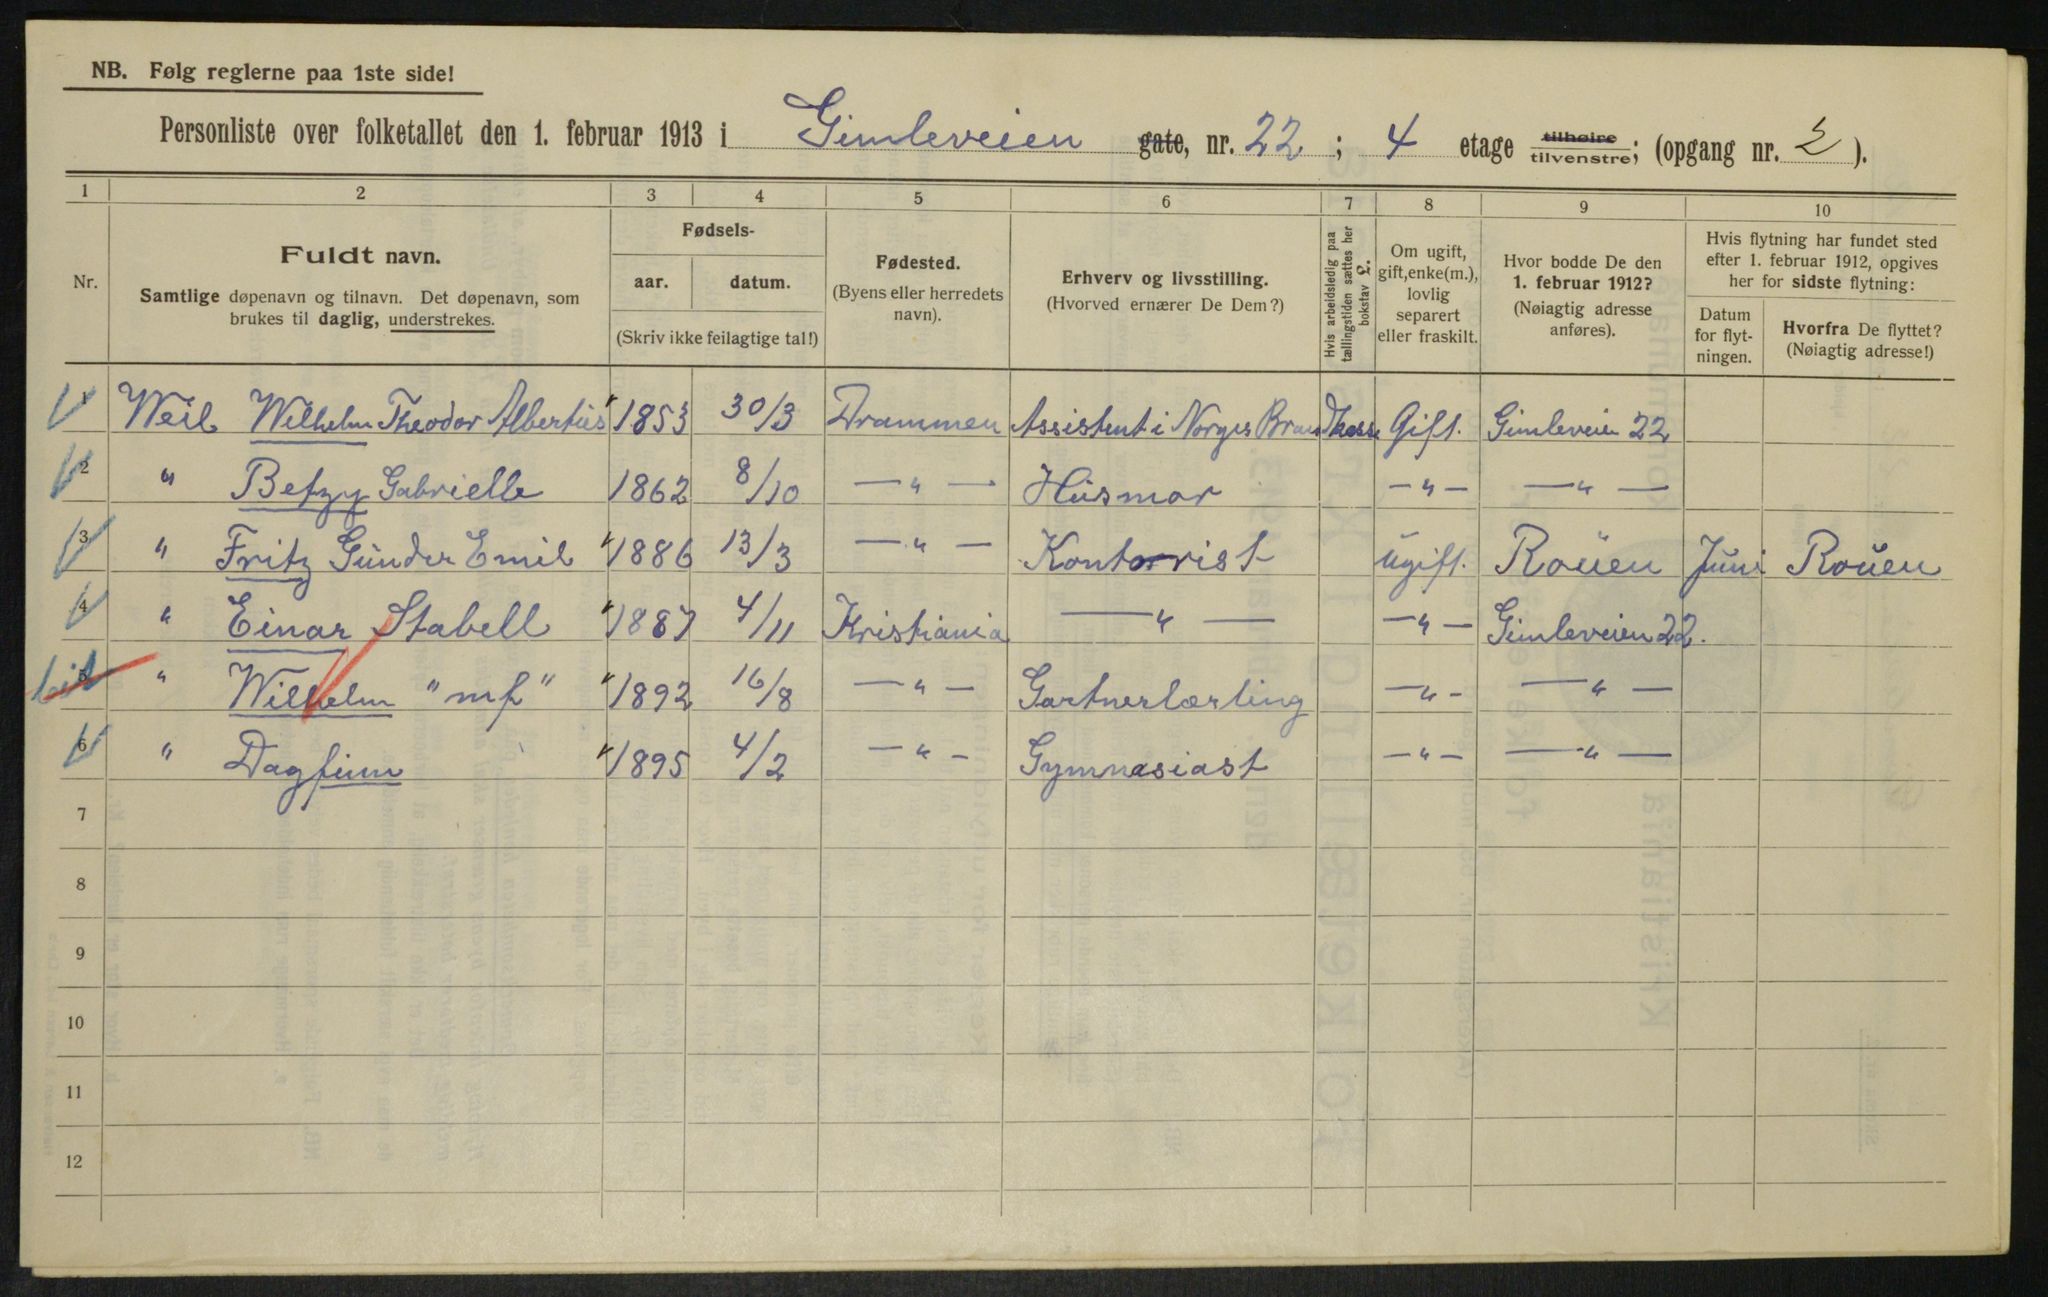 NB. Følg reglerne paa 1ste side!
Personliste over folketallet den 1. februar 1913 i Gimleveien gate, nr. 22 ; 4 etage tilhøire tilvenstre; (opgang nr. 2 ).
1 2 3 4 5 6 7 8 9 10
Nr.
Fuldt navn.
Samtlige døpenavn og tilnavn. Det døpenavn, som
brukes til daglig, understrekes.
Fødsels-
aar. datum.
(Skriv ikke feilagtige tal!)
Fødested.
(Byens eller herredets
navn).
Erhverv og livsstilling.
(Hvorved ernærer De Dem?)
Hvis arbeidsledig paa
tællingstiden sættes her
bokstav L.
Om ugift,
gift, enke(m.),
lovlig
separert
eller fraskilt.
Hvor bodde De den
1. februar 1912?
(Nøiagtig adresse
anføres).
Hvis flytning har fundet sted
efter 1. februar 1912, opgives
her for sidste flytning:
Datum
for flyt-
ningen.
Hvorfra De flyttet?
(Nøiagtig adresse!)
1 Weil Wilhelm Theodor Albertus 1853 30/3 Drammen Assistent i Norges Brandkasse Gift. Gimleveien 22
2 " Betzy Gabrielle 1862 8/10 — " — Husmor — " — — " —
3 " Fritz Gunder Emil 1886 13/3 — " — Kontorist ugift. Rouen Juni Rouen
4 " Einar Stabell 1887 4/11 Kristiania — " — — " — Gimleveien 22.
5 " Wilhelm "mf" 1892 16/8 — " — Gartnerlærling — " — — " —
6 " Dagfinn 1895 4/2 — " — Gymnasiast — " — — " —
7
8
9
10
11
12